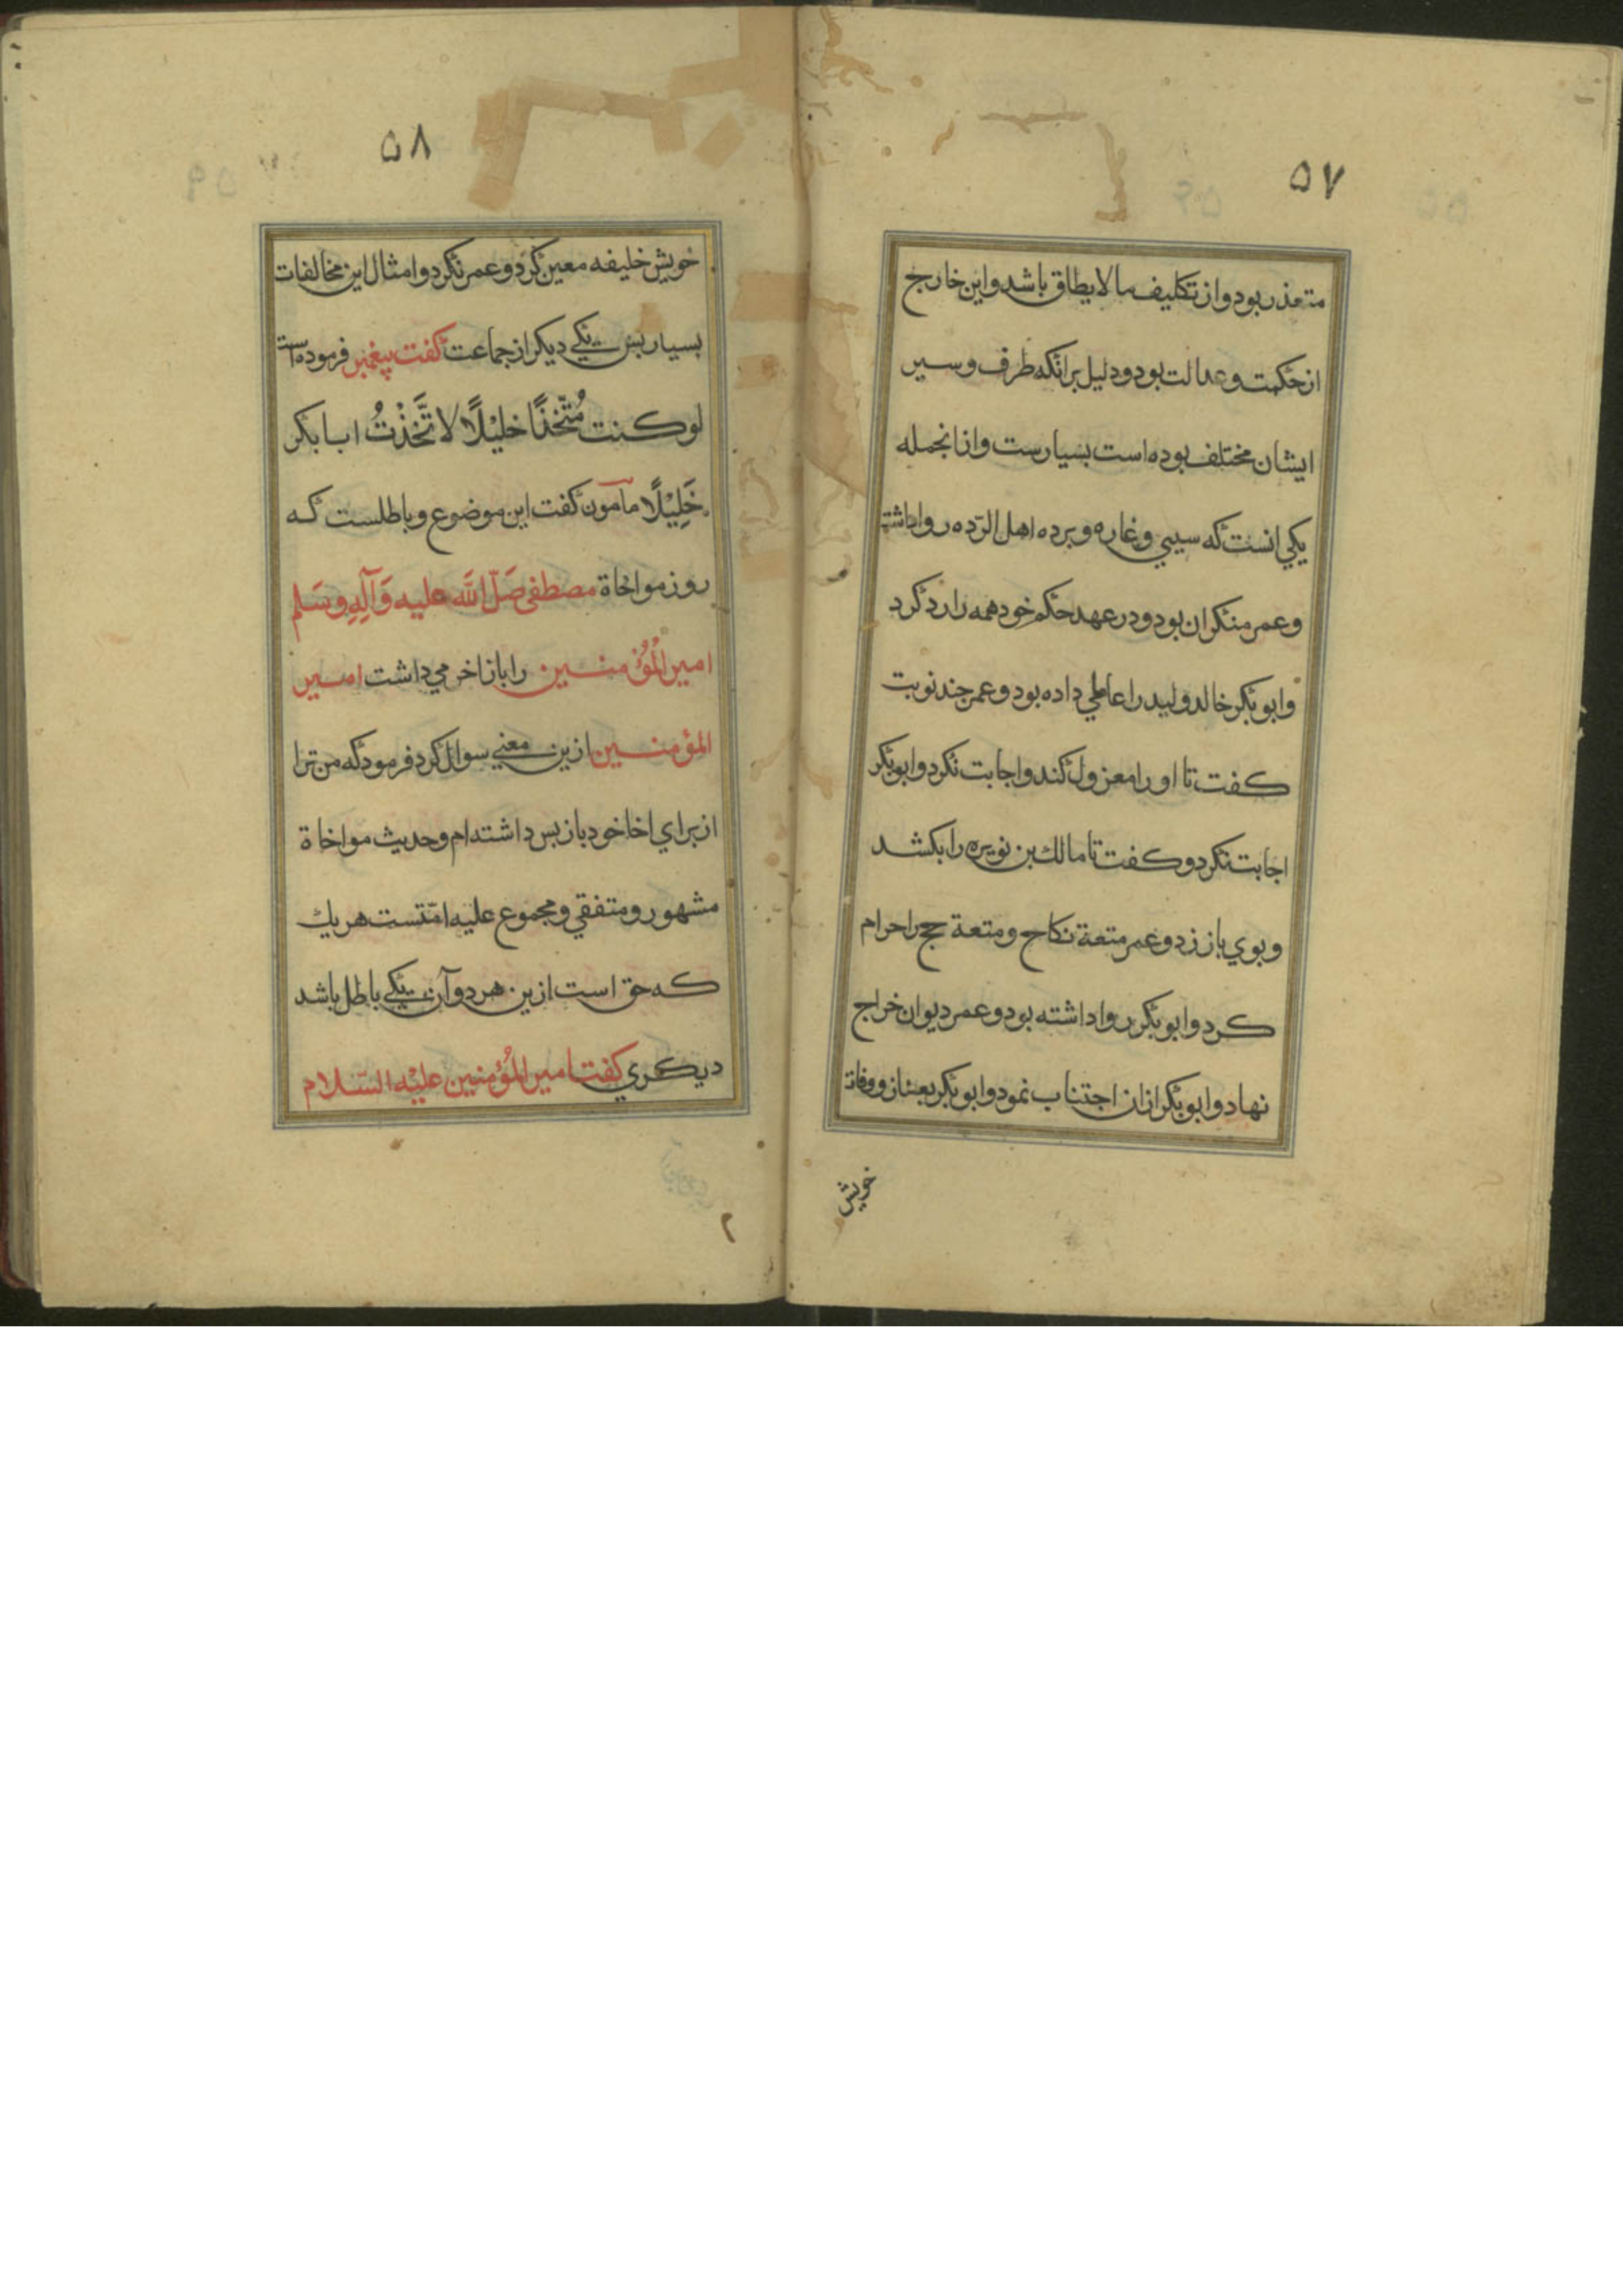 ۵۷
متعذر بود و از تکلیف ما لا یطاق باشد و این خارج
از حکمت و عدالت بود و دلیل برانکه طرف و سیر
ایشان مختلف بوده است بسیارست و از انجمله
یکی انست که سبی و غاره و برده اهل الرّده روا داشته
و عمر منکر ان بود و در عهد حکم خود همه را رد کرد
و ابو بکر خالد ولید را عاملی داده بود و عمر چند نوبت
کفت تا او را معزول کند و اجابت نکرد و ابو بکر
اجابت نکرد و کفت تا مالك بن نویره را بکشد
و بوی باز زد و عمر متعة نکاح و متعة حج را حرام
کرد و ابو بکر روا داشته بود و عمر دیوان خراج
نهاد و ابو بکر ازان اجتناب نمود و ابو بکر بعد از وفات
خویش
۵۸
خویش خلیفه معین کرد و عمر نکرد و امثال این مخالفات
بسیار بس یکی دیکر از جماعت کفت پیغمبر فرموده است
لو کنت مُتّخذًا خلیْلًا لا تَّخَذْتُ ابا بکر
خَلِیْلًا مآمون کفت این موضوع و باطلست که
روز مواخاة مصطفی صَلّ اللَه علیه وَآلِهِ وسَلم
امیر الْمُؤمنین را باز اخر می داشت امیر
المؤمنین ازین معنی سوال کرد فرمود که من ترا
از برای اخا خود باز بس داشته ام و حدیث مواخاة
مشهور و متفقی و مجموع علیه امّتست هر یك
که حق است ازین هر دو آن یکی باطل باشد
دیکری کفت امیر المُؤمنین علیْه السّلام
۲